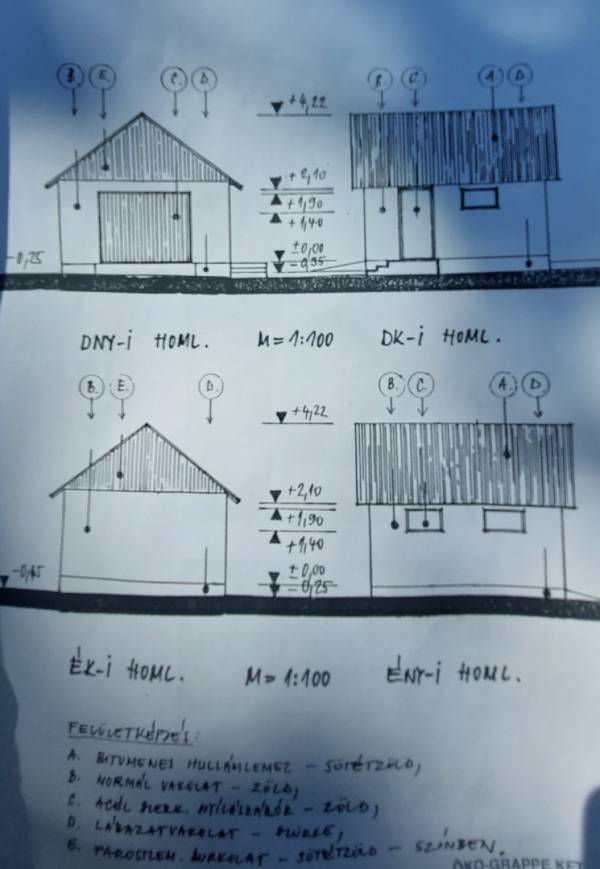 B. E. C. D. B. C. A. D.
+4,22
+2,10
+1,90
+1,40
±0,00
-0,25
DNY-I HOML. M=1:100 DK-I HOML.
B. E. D. B. C. A. D.
+4,22
+2,10
+1,90
+1,40
±0,00
-0,25
ÉK-I HOML. M=1:100 ÉNY-I HOML.
FELÜLETKÉPZÉS:
A. BITUMENES HULLÁMLEMEZ - SÖTÉTZÖLD,
B. NORMÁL VAKOLAT - ZÖLD,
C. ACÉL SZERK. NYÍLÁSZÁRÓK - ZÖLD,
D. LÁBAZATVAKOLAT - SZÜRKE,
E. FAROSTLEM. BURKOLAT - SÖTÉTZÖLD - SZÍNBEN.
ÖKO-GRAPPE KFT